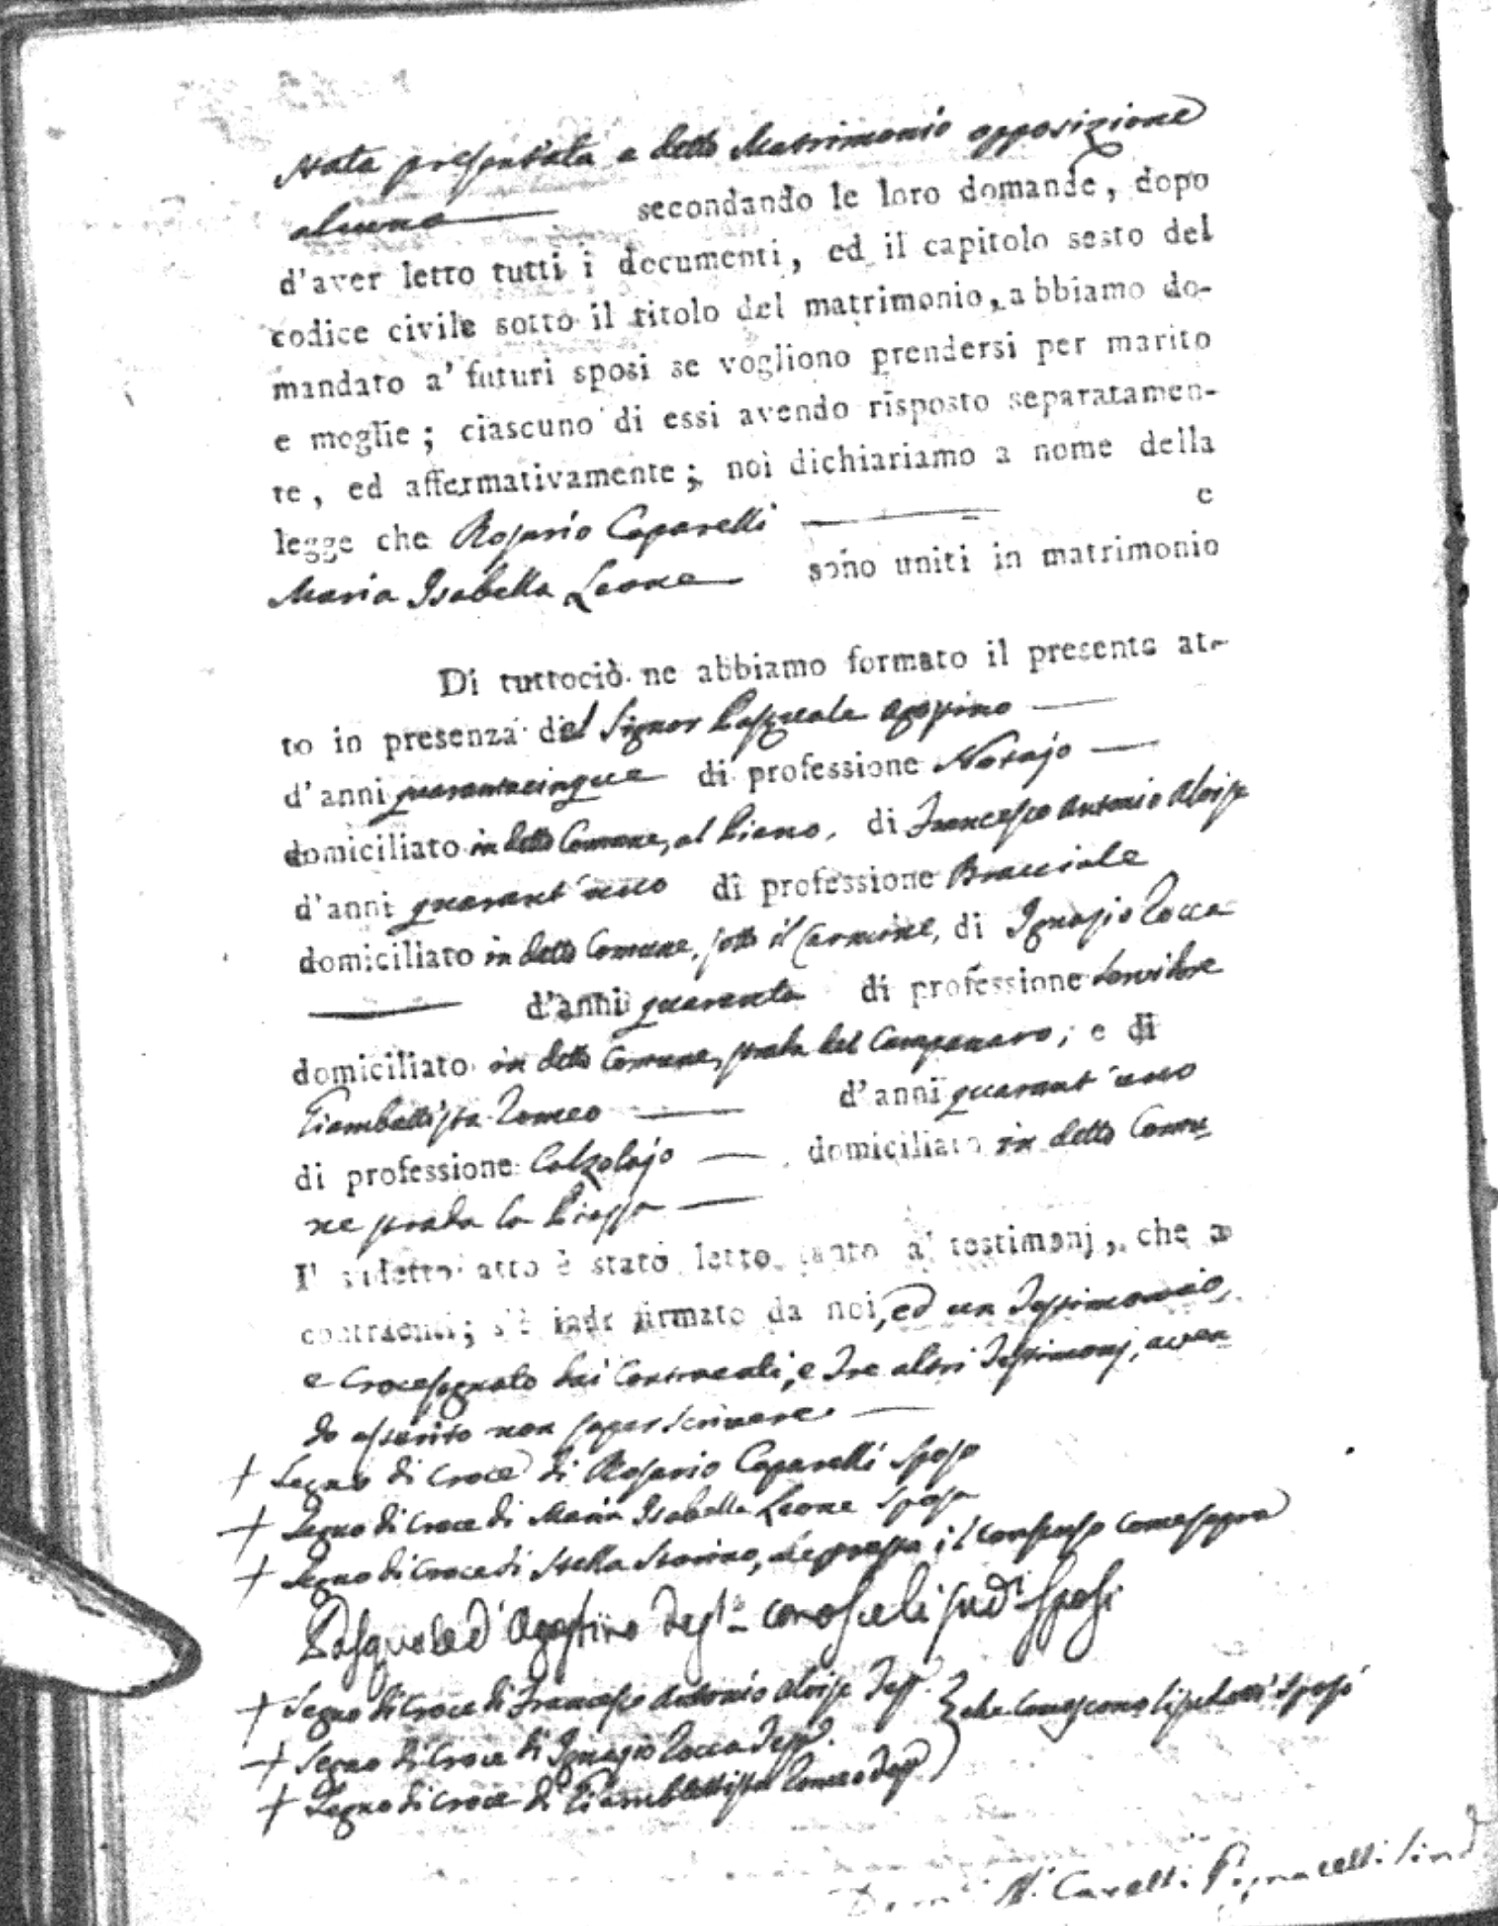 stata presentata a detto Matrimonio opposizione
alcuna secondando le loro domande, dopo
d'aver letto tutti i documenti, ed il capitolo sesto del
codice civile sotto il titolo del matrimonio, abbiamo do-
mandato a' futuri sposi se vogliono prendersi per marito
e moglie; ciascuno di essi avendo risposto separatamen-
te, ed affermativamente; noi dichiariamo a nome della
legge che Rosario Caparelli e
Maria Isabella Leone sono uniti in matrimonio
Di tuttociò ne abbiamo formato il presente at-
to in presenza del Signor Pasquale Agostino
d'anni quarantacinque di professione Notajo
domiciliato in detto Comune, al Piano, di Francesco Antonio Aloise
d'anni quarant'uno di professione Bracciale
domiciliato in detto Comune, sotto il Carmine, di Ignazio Rocca
d'anni quaranta di professione Servidore
domiciliato in detto Comune, strada del Campanaro; e di
Giambattista Romeo d'anni quarant'uno
di professione Calzolajo domiciliato in detto Comu-
ne strada la Piazza
Il sudetto atto è stato letto tanto a' testimonj, che a
contraenti; s'è indi firmato da noi, ed un Testimonio,
e Crocesegnato dai Contraenti, e tre altri Testimonj, aven-
do asserito non saper scrivere
+ Segno di Croce di Rosario Caparelli Sposo
+ Segno di Croce di Maria Isabella Leone Sposa
+ Segno di Croce di Stella Storino, che presta il consenso come sopra
Pasquale d'Agostino Test.º conosce li sud.i Sposi
+ Segno di Croce di Francesco Antonio Aloise Test. che conoscono li sudetti Sposi
+ Segno di Croce di Ignazio Rocca Test.
+ Segno di Croce di Giambattista Romeo Test.
Cavelti Pignatelli Sind